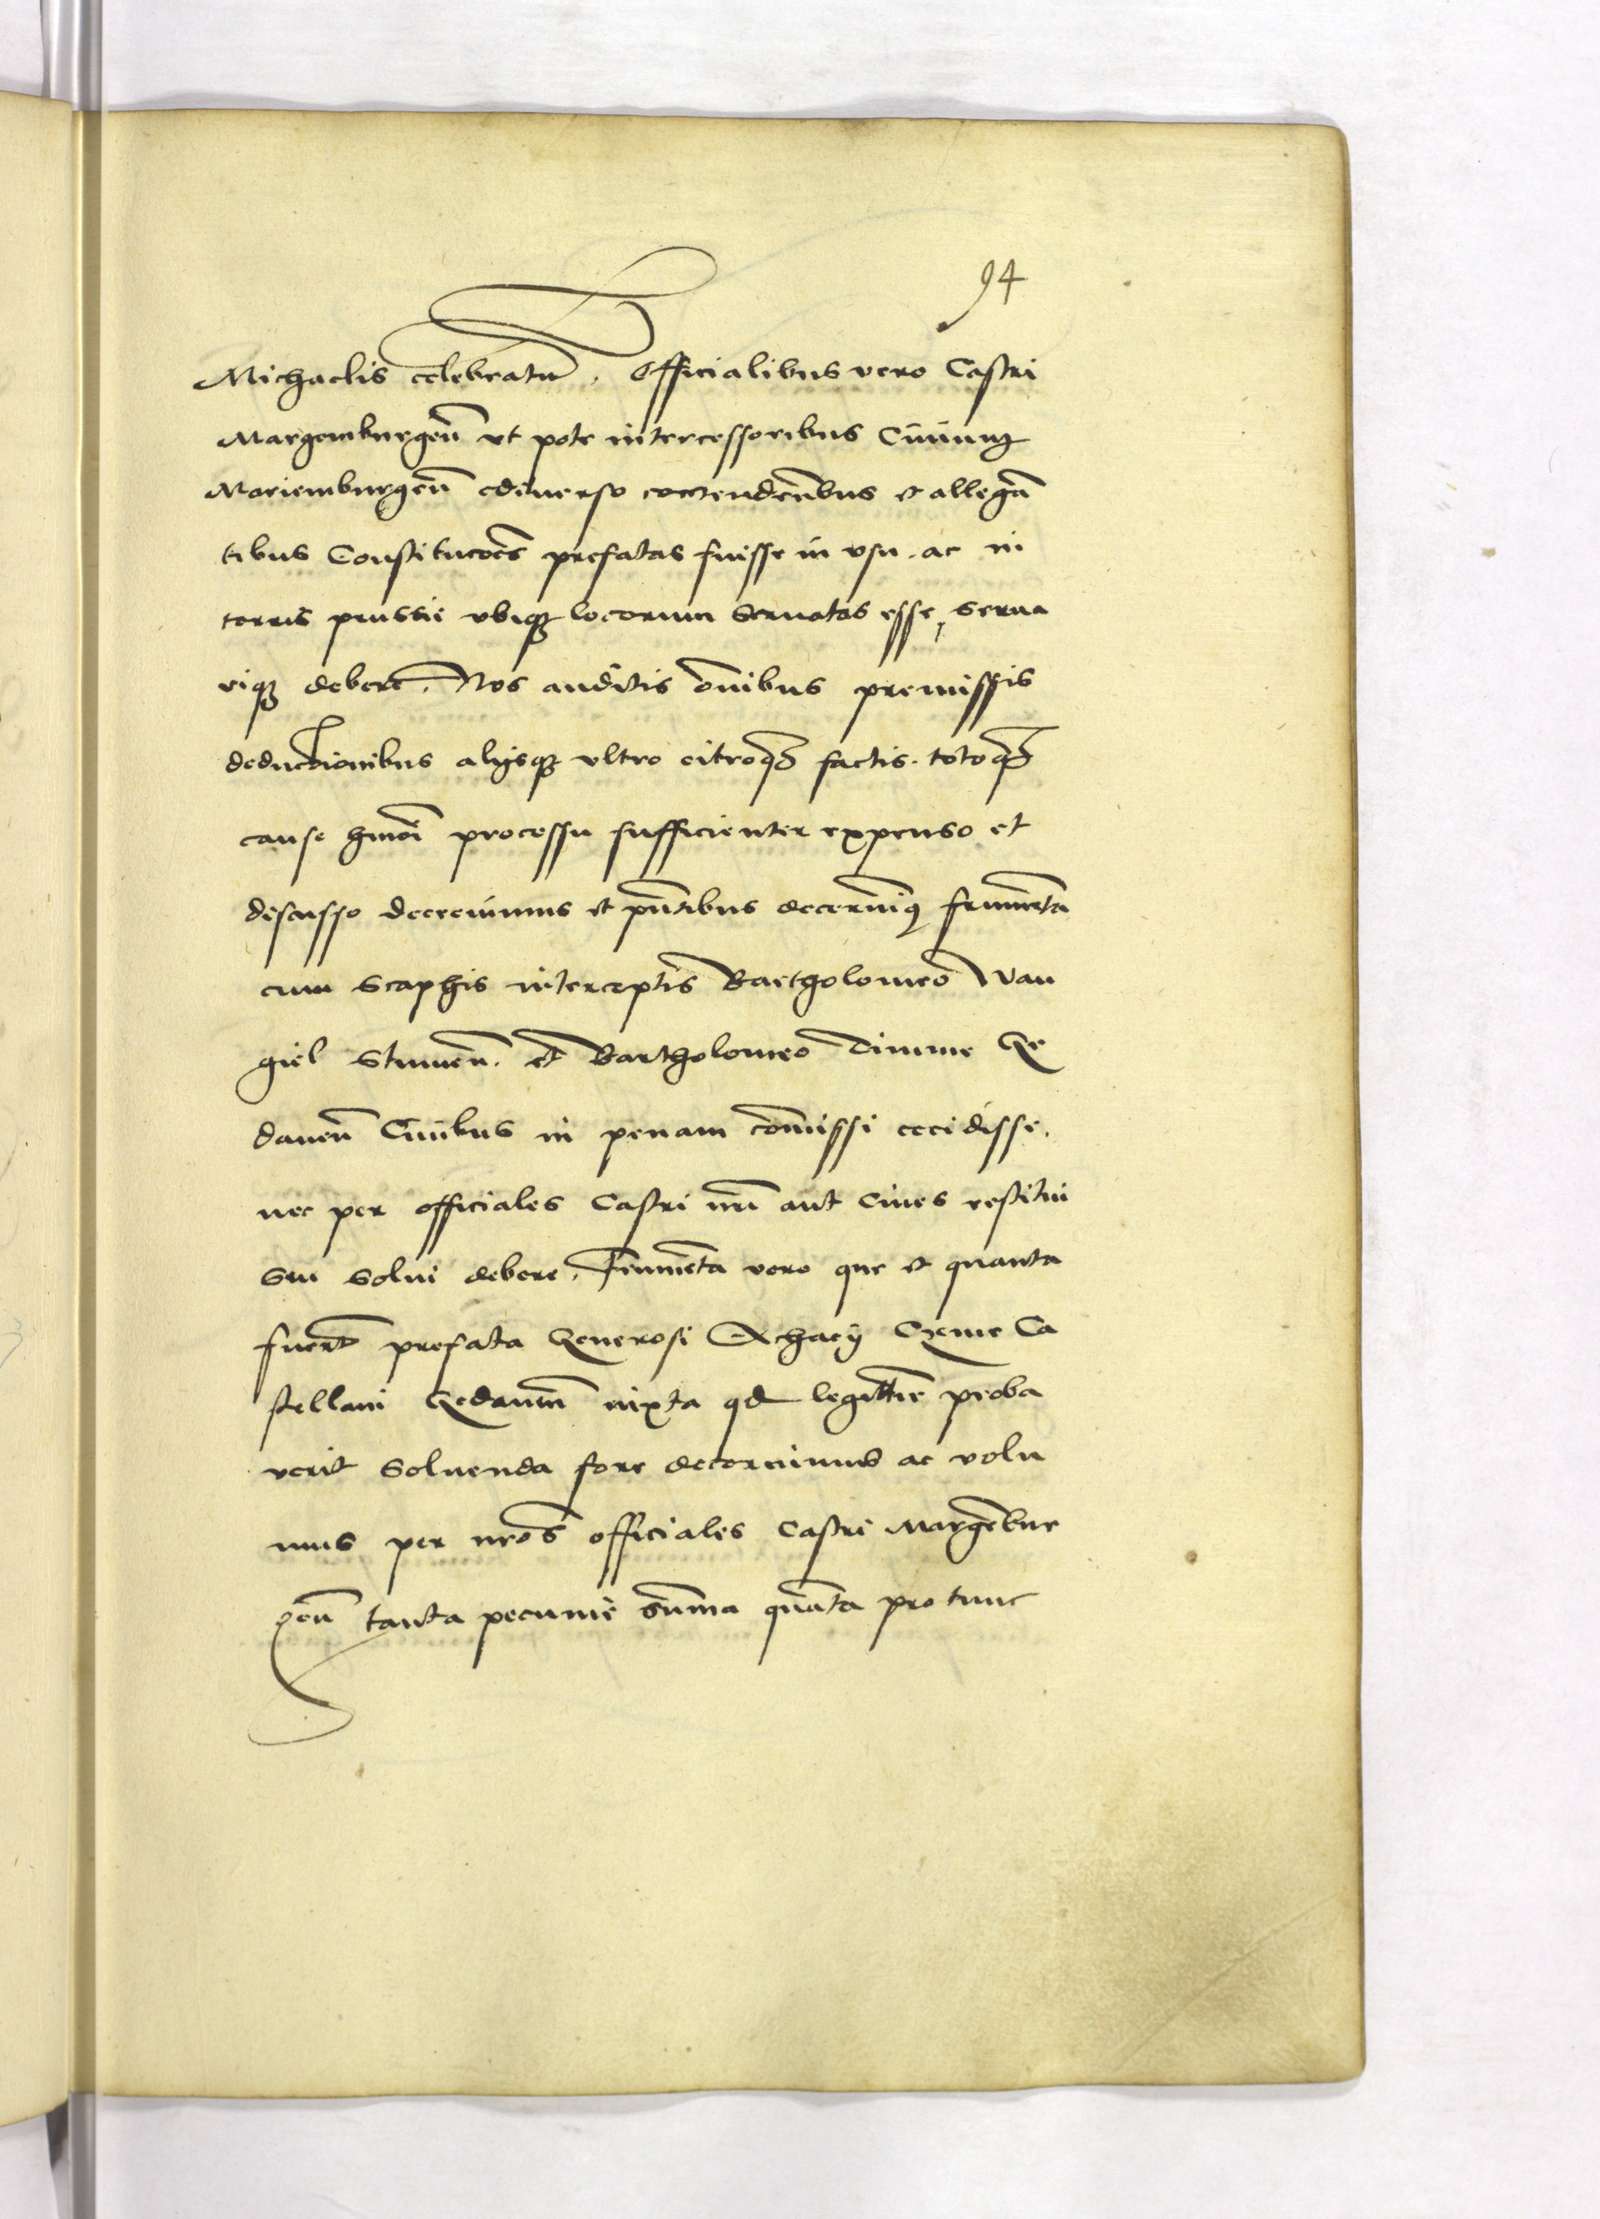 94
Michaelis celebratu͂. Officialibus vero Castri
Margemburgen̄ vt pote intercessoribus Ciuiuꝫ
Mariemburgen̄ ediuerso contenden̄bus et allegā
tibus Constituco͂es prefatas fuisse in vsu. ac in
terris prussie vbiqꝫ locorum seruatas esse, serua
riqꝫ debere. Nos auditis om̄ibus premissis
deductionibus alijsqꝫ vltro citroqꝫ factis. totoqꝫ
cause hmōi processu sufficienter expenso et
discusso decreuimus et pn̄tibus decernimꝰ frumēta
cum scaphis interceptis Bartholomeo Wan
giel Stumen̄. et Bartholomeo Dimme Ge
danen̄ Ciuibus in penam com̄issi cecidisse.
nec per officiales Castri nr̄i aut Ciues restitui
seu solui debere. Frumēta vero que et quanta
fuer̄t prefata Generosi Achacij Czeme Ca
stellani Gedanen̄ iuxta qd legittīe proba
verit soluenda fore decernimus ac volu
mus per nr̄os officiales Castri Margēbur
gen̄ tanta pecunie sum̄a quāta pro tunc